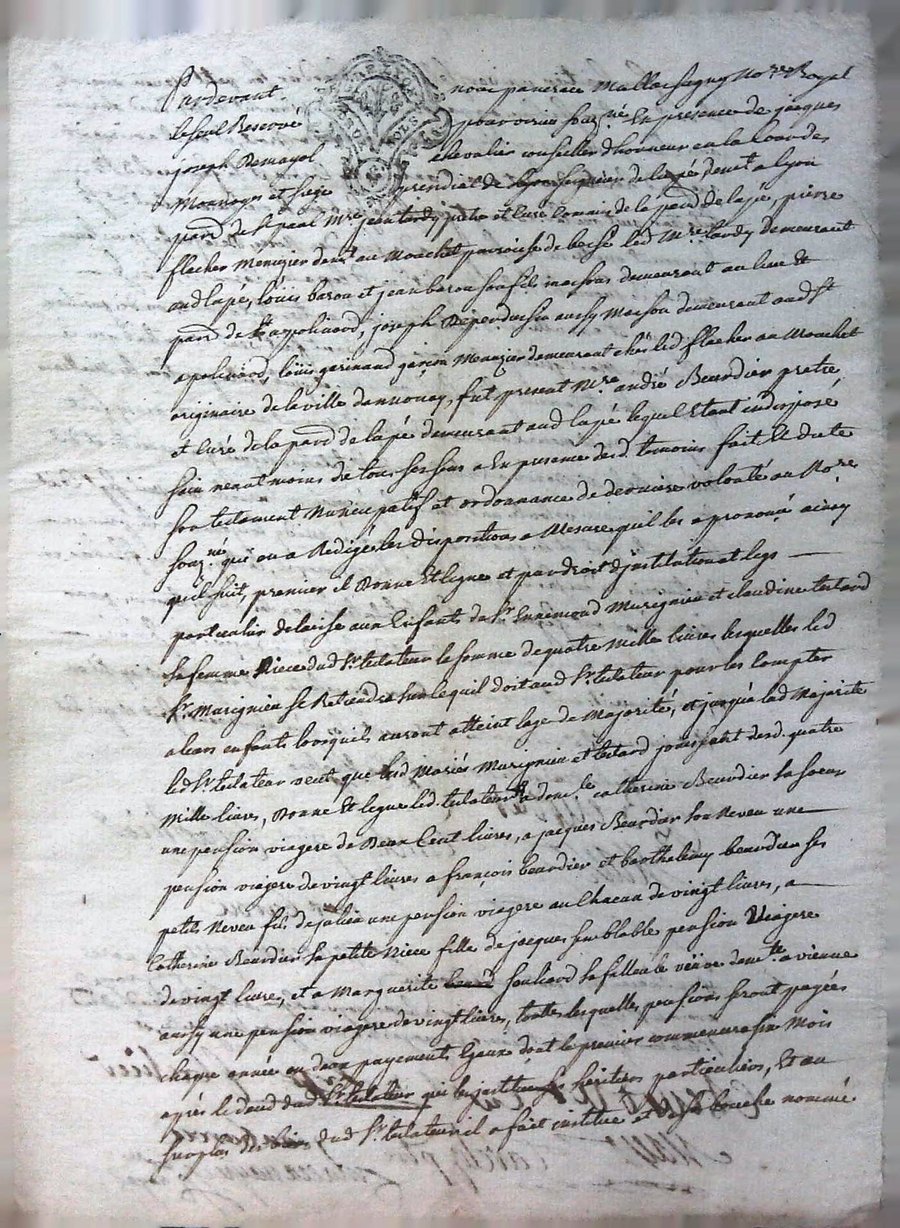 Pardevant nous pancrace Mallassagny No.re Royal
le seul Reservé pour vernu souz.né En presence de jacques
joseph Remayol chevalier conseiller d'honneur en la Cour des
Monnoyes et siege presidial de Lyon seigneur de lapé dem.t a lyon
par.d de S.t paul M.re jean tardy pretre et Curé de la par.d de lapé, pierre
flacher Menuzier dem.t au Mouchet parroisse de bessé led M.re tardy demeurant
aud lapé, Louis baron et jean baron son fils massons demeurant au lieu et
par.d de S.t appolinard, joseph Dependu aussy Masson demeurant aud S.t
apolinard, Loüis garinaud garçon Menuzier demeurant chés led flacher au Mouchet
originaire de la ville dannonay, fut present M.re andré Beurdier pretre
et Curé de la par.d de lapé demeurant aud lapé lequel Etant indisposé
sain neantmoins de tous ses sens a En presence desd temoins fait Et dicté
son testament Nuncupatif et ordonnance de derniere volonté au No.re
souz.né qui en a Redigé les dispositions a Mesure quil les a prononcé ainsy
quil suit, premier il Donne Et legue et par droit d'institution et legs
particulier delaisse aux Enfants de S.r Ennemond Marignier et claudine testard
sa femme Niece dud S.r testateur la somme de quatre Mille livres lesquelles led
S.r Marignier se Retiendra sur le quil doit aud S.r testateur pour les Compter
a leurs enfants lorsquils auront atteint lage de Majorité, et jusqua lad Majorité
led S.r testateur veut que lesd Mariés Marignier et testard jouissent desd quatre
Mille livres, Donne Et legue led testateur a dem.lle catherine Beurdier sa soeur
une pension viagere de Deux Cent livres, a jacques Beurdier son Neveu une
pension viagere de vingt livres a françois beurdier et barthelemy beurdier ses
petits Neveu fils de julien une pension viagere au Chacun de vingt livres, a
Catherine Beurdier sa petite Niece fille de jacques semblable pension Viagere
de vingt livres, et a Marguerite souliard sa filleule veuve dem.te a vienne
aussy une pension viagere de vingt livres, toutes lesquelles pensions seront payées
chaque année en deux payements Egaux dont le premier commencera six Mois
après le deced dud S.r testateur heritiers particuliers, Et au
surplus des biens dud S.r testateur il a fait institué et de sa bouche nommé